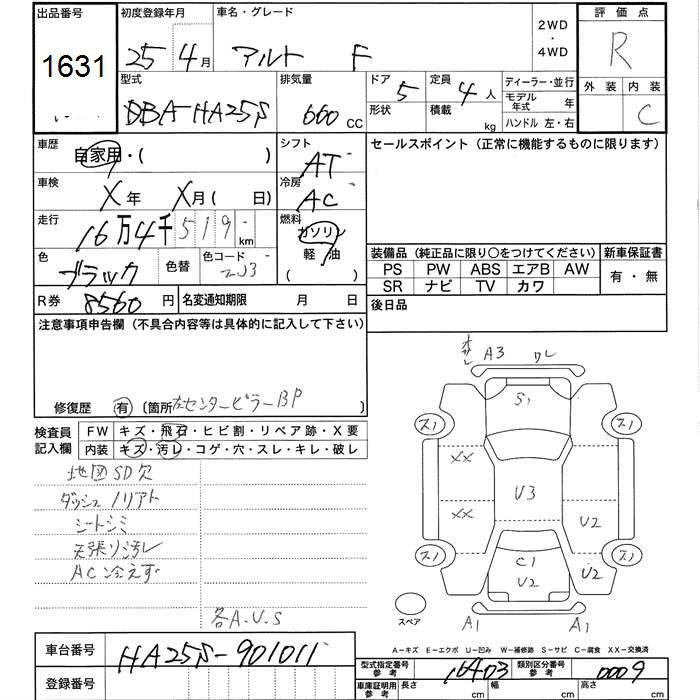 出品番号 初度登録年月 車名・グレード 2WD ・ 4WD 評価点
1631 25 4月 アルト F R
外装 内装
C
型式 排気量 ドア 定員 ディーラー・並行
DBA-HA25S 660 CC 5 4人 モデル年式 年
形状 積載 kg ハンドル 左・右
車歴 自家用・( ) シフト AT セールスポイント（正常に機能するものに限ります）
車検 X年 X月( 日) 冷房 AC
走行 16万4千519 km 燃料 ガソリン
軽油
( )
色 ブラック 色替 色コード ZJ3
装備品（純正品に限り○をつけてください） 新車保証書
PS PW ABS エアB AW 有・無
SR ナビ TV カワ
R券 8560円 名変通知期限 月 日 後日品
注意事項申告欄（不具合内容等は具体的に記入して下さい）
修復歴 有 [箇所 左センターピラーBP )
検査員記入欄 FW キズ・飛石・ヒビ割・リペア跡・X要
内装 キズ・汚レ・コゲ・穴・スレ・キレ・破レ
地図SD欠
シートシミ
天張り汚レ
AC冷えず
各A.U.S
A3 ワレ
S1
XX
U3
XX
U2
C1
U2
U2
スペア
A1 A1
A-キズ E-エクボ U-凹み W-補修跡 S-サビ C-腐食 XX-交換済
車台番号 HA25S-901011
登録番号
型式指定番号 参考 16403 類別区分番号 参考 0009
車庫証明用 参考 長さ cm 幅 cm 高さ cm